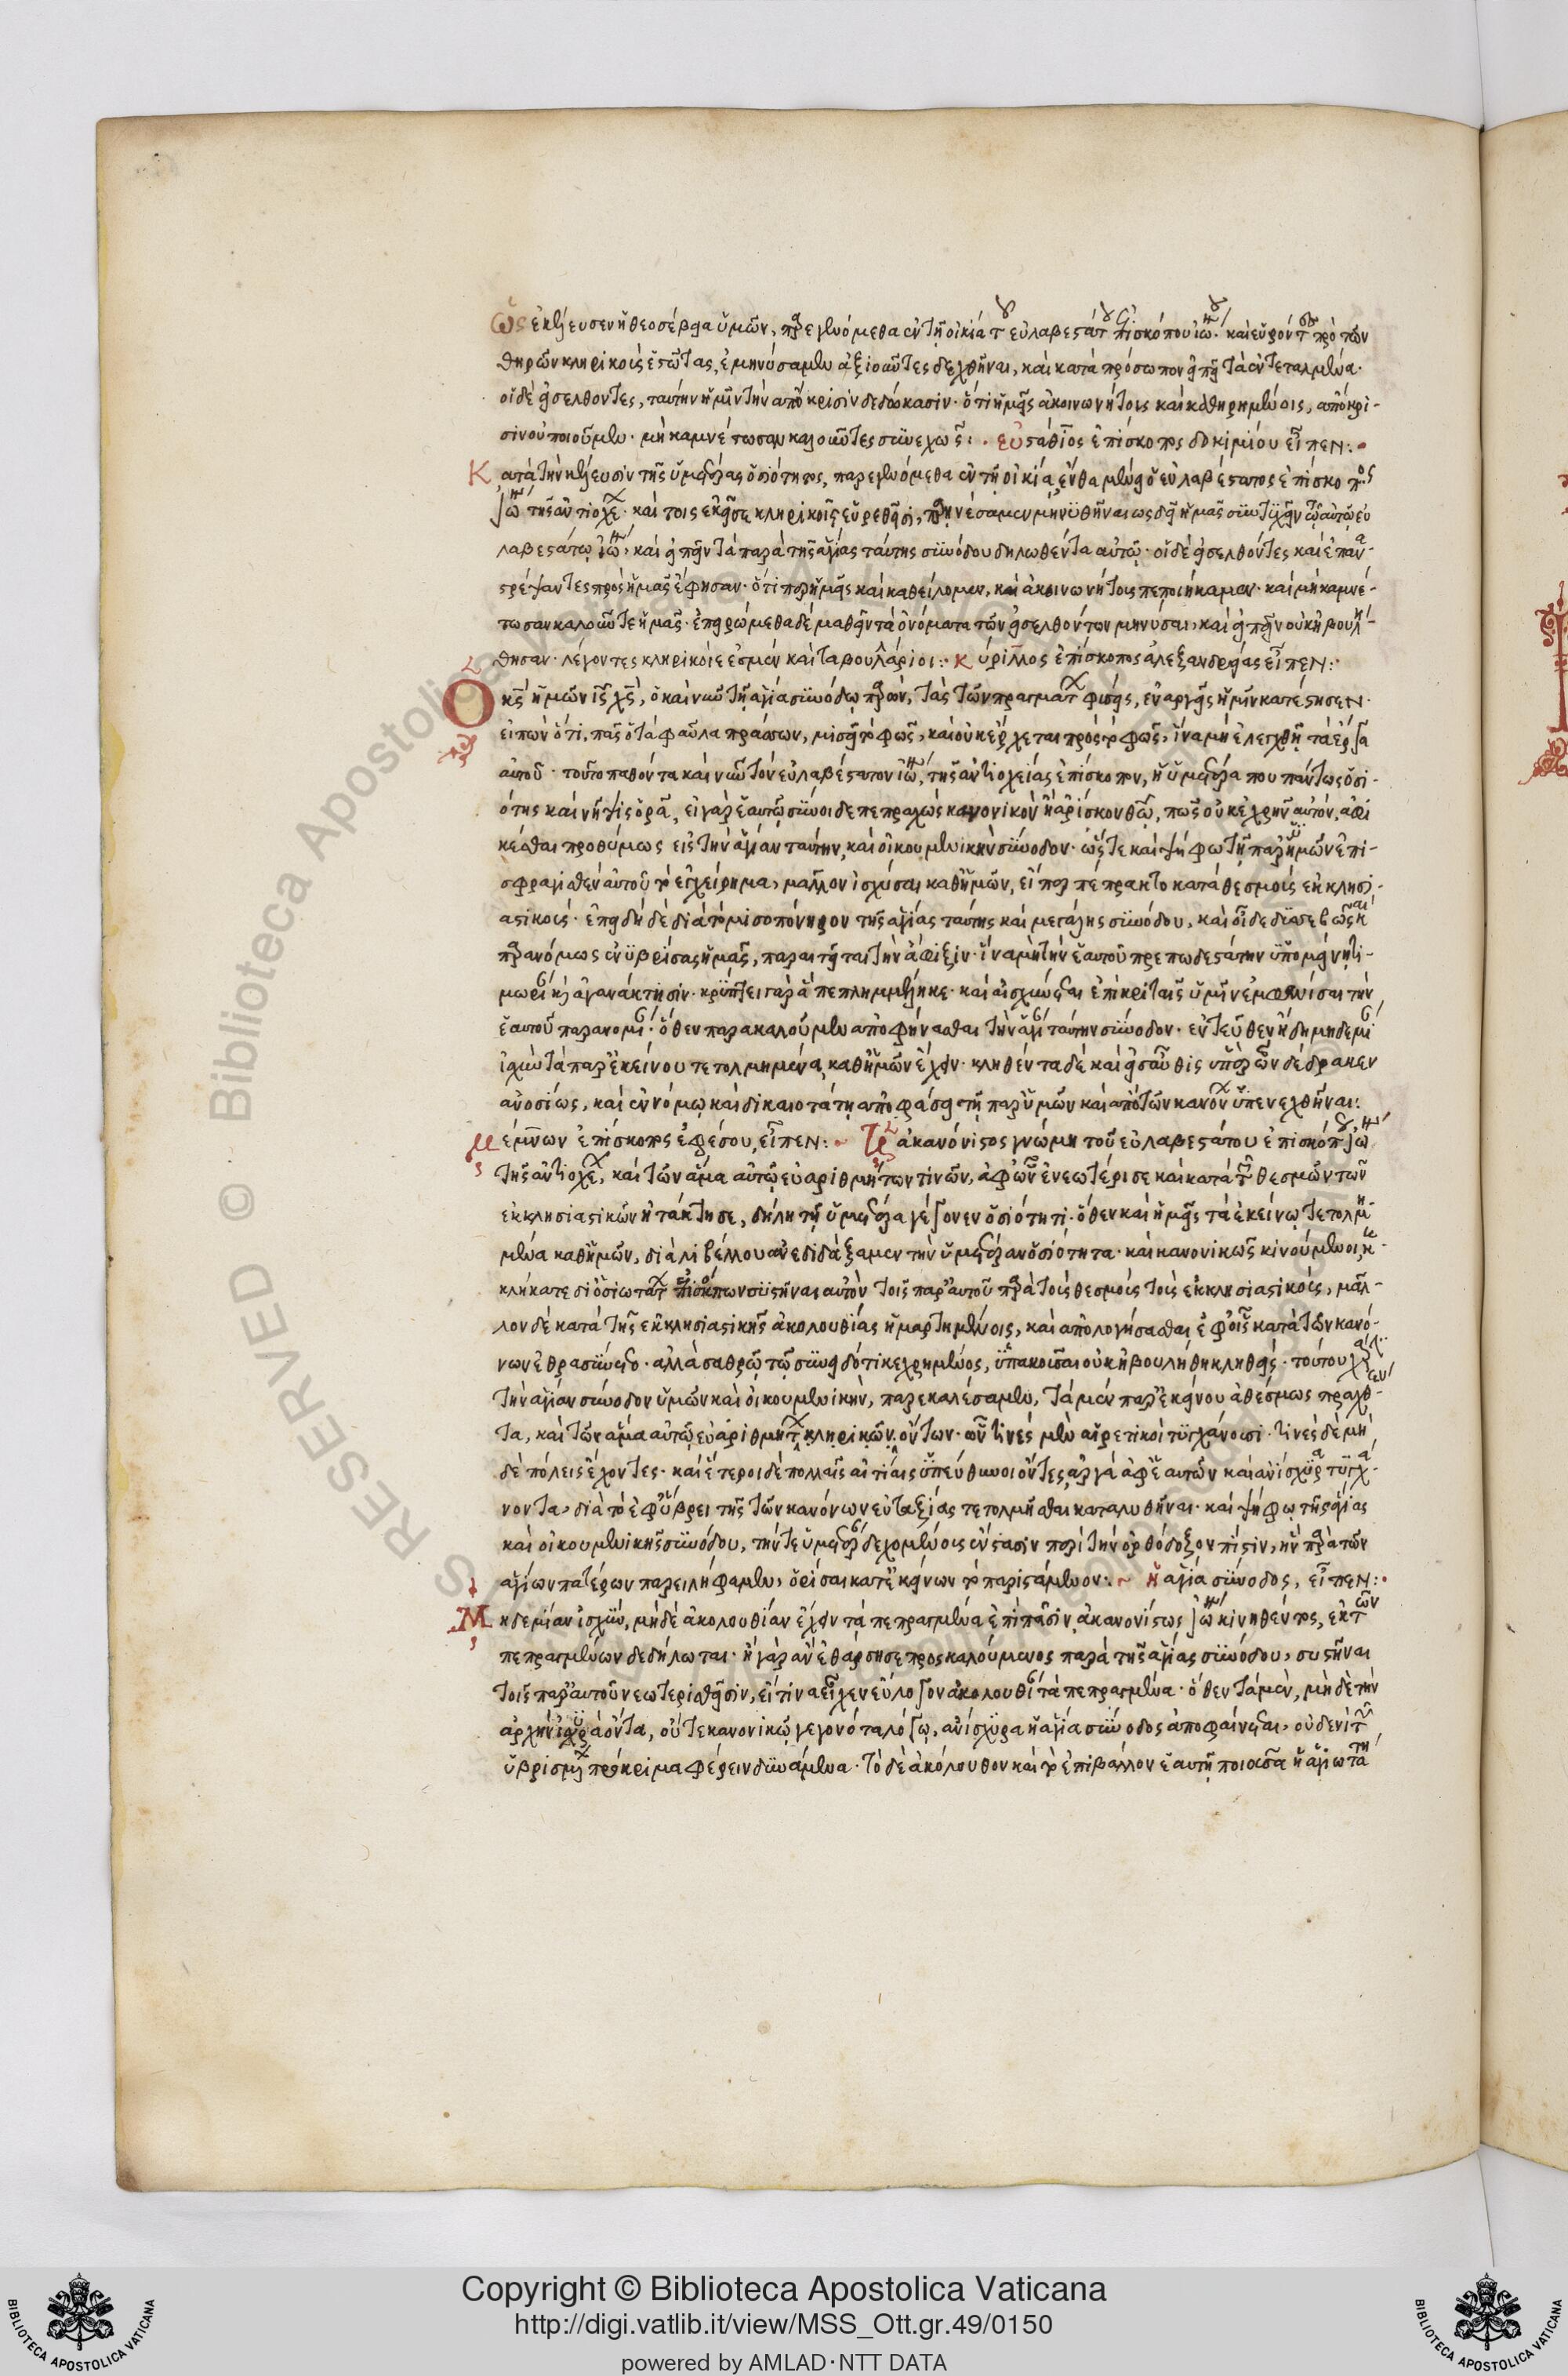 Ὡς ἐκέλευσεν ἡ θεοσέβεια ὑμῶν, παρεγενόμεθα ἐν τῇ οἰκίᾳ τοῦ εὐλαβεστάτου ἐπισκόπου ἰωάννου· καὶ εὑρόντες πρὸ τῶν
θηρῶν κληρικοὺς ἑστῶτας, ἐμηνύσαμεν ἀξιοῦντες δεχθῆναι, καὶ κατὰ πρόσωπον εἰπεῖν τὰ ἐντεταλμένα·
οἱ δὲ εἰσελθόντες, ταύτην ἡμῖν τὴν ἀπόκρισιν δεδώκασιν· ὅτι ἡμεῖς ἀκοινωνήτοις καὶ καθῃρημένοις, ἀπόκρι-
σιν οὐ ποιοῦμεν· μὴ καμνέτωσαν καλοῦντες συνεχῶς:· εὐστάθιος ἐπίσκοπος δοκιμίου εἶπεν:·
Κατὰ τὴν κέλευσιν τῆς ὑμετέρας ὁσιότητος, παρεγενόμεθα ἐν τῇ οἰκίᾳ ἔνθα μένει ὁ εὐλαβέστατος ἐπίσκοπος
ἰωάννης τῆς ἀντιοχέων· καὶ τοῖς ἐκεῖσε κληρικοῖς εὑρεθεῖσι, παρῃνέσαμεν μηνυθῆναι ὡς δεῖ ἡμᾶς συντυχεῖν αὐτῷ τῷ εὐ
λαβεστάτῳ ἰωάννῃ, καὶ εἰπεῖν τὰ παρὰ τῆς ἁγίας ταύτης συνόδου δηλωθέντα αὐτῷ· οἱ δὲ εἰσελθόντες καὶ ἐπανα-
στρέψαντες πρὸς ἡμᾶς ἔφησαν· ὅτιπερ ἡμεῖς καὶ καθείλομεν, καὶ ἀκοινωνήτους πεποιήκαμεν· καὶ μὴ καμνέ-
τωσαν καλοῦντες ἡμᾶς· ἐπειρώμεθα δὲ μαθεῖν τὰ ὀνόματα τῶν εἰσελθόντων μηνῦσαι, καὶ εἰπεῖν οὐκ ἠβουλή-
θησαν· λέγοντες κληρικοί ἐσμεν καὶ ταβουλλάριοι:· κύριλλος ἐπίσκοπος ἀλεξανδρείας εἶπεν:·
Ὁ κς ἡμῶν ις χς, ὁ καὶ νῦν τῇ ἁγίᾳ συνόδῳ παρών, τὰς τῶν πραγμάτων φύσεις, ἐναργεῖς ἡμῖν κατέστησεν·
εἰπὼν ὅτι, πᾶς ὁ τὰ φαῦλα πράσσων, μισεῖ τὸ φῶς, καὶ οὐκ ἔρχεται πρὸς τὸ φῶς, ἵνα μὴ ἐλεγχθῇ τὰ ἔργα
αὐτοῦ· τοῦτο παθόντα καὶ νῦν τὸν εὐλαβέστατον ἰωάννην, τῆς ἀντιοχείας ἐπίσκοπον, ἡ ὑμετέρα που πάντως ὁσι-
ότης καὶ νῆψις ὁρᾷ, εἰ γὰρ ἑαυτῷ συνῄδει πεπραχὼς κανονικὸν ἢ ἀρέσκον θεῷ, πῶς οὐκ ἐχρῆν αὐτὸν, ἀφι
κέσθαι προθύμως εἰς τὴν ἁγίαν ταύτην, καὶ οἰκουμενικὴν σύνοδον· ὥστε καὶ ψήφῳ τῇ παρ ὑμῶν ἐπι-
σφραγισθὲν αὐτοῦ τὸ ἐγχείρημα, μᾶλλον ἰσχῦσαι καθ ἡμῶν, εἴπερ πέπρακτο κατὰ θεσμοὺς ἐκκλησι-
αστικούς· ἐπειδὴ δὲ διὰ τὸ μισοπόνηρον τῆς ἁγίας ταύτης καὶ μεγάλης συνόδου, καὶ οἶδε δυσσεβῶς καὶ
παρανόμως ἐνυβρίσας ἡμᾶς, παραιτεῖται τὴν ἄφιξιν· ἵνα μὴ τὴν ἑαυτοῦ πρεπωδεστάτην ὑπομείνῃ τι-
μωρίαν καὶ ἀγανάκτησιν· κρύπτει γὰρ ἃ πεπλημμέληκε· καὶ αἰσχύνεται ἐπὶ κριταῖς ὑμῖν ἐμφανίσαι τὴν
ἑαυτοῦ παρανομίαν· ὅθεν παρακαλοῦμεν ἀποφήνασθαι τὴν ἁγίαν ταύτην σύνοδον· ἐντεῦθεν ἤδη μηδεμίαν
ἰσχὺν τὰ παρ ἐκείνου τετολμημένα, καθ ἡμῶν ἔχειν· κληθέντα δὲ καὶ εἰσαῦθις ὑπὲρ ὧν δέδρακεν
ἀνοσίως, καὶ ἐννόμῳ καὶ δικαιοτάτῃ ἀποφάσει τῇ παρ ὑμῶν καὶ ἀπὸ τῶν κανόνων ὑπενεχθῆναι:
Μέμνων ἐπίσκοπος ἐφέσου, εἶπεν:· Ἡ ἀκανόνιστος γνώμη τοῦ εὐλαβεστάτου ἐπισκόπου ἰωάννου
τῆς ἀντιοχέων, καὶ τῶν ἅμα αὐτῷ εὐαριθμήτων τινῶν, ἀφ ὧν ἐνεωτέρισε καὶ κατὰ τῶν θεσμῶν τῶν
ἐκκλησιαστικῶν ἠτάκτησε, δήλη τῇ ὑμετέρᾳ γέγονεν ὁσιότητι· ὅθεν καὶ ἡμεῖς τὰ ἐκείνῳ τετολμη-
μένα καθ ἡμῶν, διὰ λιβέλλου ἀνεδιδάξαμεν τὴν ὑμετέραν ὁσιότητα· καὶ κανονικῶς κινούμενοι, κε-
κλήκατε δι ὁσιωτάτων ἐπισκόπων συστῆναι αὐτὸν τοῖς παρ αὐτοῦ παρὰ τοῖς θεσμοῖς τοῖς ἐκκλησιαστικοῖς, μᾶλ-
λον δὲ κατὰ τῆς ἐκκλησιαστικῆς ἀκολουθίας ἡμαρτημένοις, καὶ ἀπολογήσασθαι ἐφ οἷς κατὰ τῶν κανό-
νων ἐθρασύνετο· ἀλλὰ σαθρῷ τῷ συνειδότι κεχρημένος, ὑπακοῦσαι οὐκ ἠβουλήθη κληθείς· τούτου χάριν
τὴν ἁγίαν σύνοδον ὑμῶν καὶ οἰκουμενικὴν, παρεκαλέσαμεν, τὰ μὲν παρ ἐκείνου ἀθέσμως πραχθέν-
τα, καὶ τῶν ἅμα αὐτῷ εὐαριθμήτων κληρικῶν ὄντων· ὧν τινὲς μὲν αἱρετικοὶ τυγχάνουσι· τινὲς δὲ μὴ
δὲ πόλεις ἔχοντες· καὶ ἕτεροι δὲ πολλαῖς αἰτίαις ὑπεύθυνοι ὄντες, ἀργὰ ἀφ ἑαυτῶν καὶ ἀνίσχυρα τυγχά-
νοντα, διὰ τὸ ἐφ ὕβρει τῆς τῶν κανόνων εὐταξίας τετολμῆσθαι καταλυθῆναι· καὶ ψήφῳ τῆς ἁγίας
καὶ οἰκουμενικῆς συνόδου, τήν τε ὑμετέραν δεχομένοις ἔνστασιν περὶ τὴν ὀρθόδοξον πίστιν, ἣν παρὰ τῶν
ἁγίων πατέρων παρειλήφαμεν, ὁρίσαι κατ ἐκείνων τὸ παριστάμενον:· ~ ἡ ἁγία σύνοδος, εἶπεν:·
Μηδεμίαν ἰσχὺν, μηδὲ ἀκολουθίαν ἔχειν τὰ πεπραγμένα ἐπὶ πᾶσιν, ἀκανονίστως ἰωάννου κινηθέντος, ἐκ τῶν
πεπραγμένων δεδήλωται· ἢ γὰρ ἂν ἐθάρσησε προσκαλούμενος παρὰ τῆς ἁγίας συνόδου, συστῆναι
τοῖς παρ αὐτοῦ νεωτερισθεῖσιν, εἴ τινα εἶχεν εὔλογον ἀκολουθίαν τὰ πεπραγμένα· ὅθεν τὰ μὲν, μὴ δὲ τὴν
ἀρχὴν ἰσχυρὰ ὄντα, οὔτε κανονικῷ γεγονότα λόγῳ, ἀνίσχυρα ἡ ἁγία σύνοδος ἀποφαίνεται, οὐδενὶ τῶν
ὑβρισμένων πρόκριμα φέρειν δυνάμενα· τὸ δὲ ἀκόλουθον καὶ τὸ ἐπιβάλλον ἑαυτῇ ποιοῦσα ἡ ἁγιωτάτη